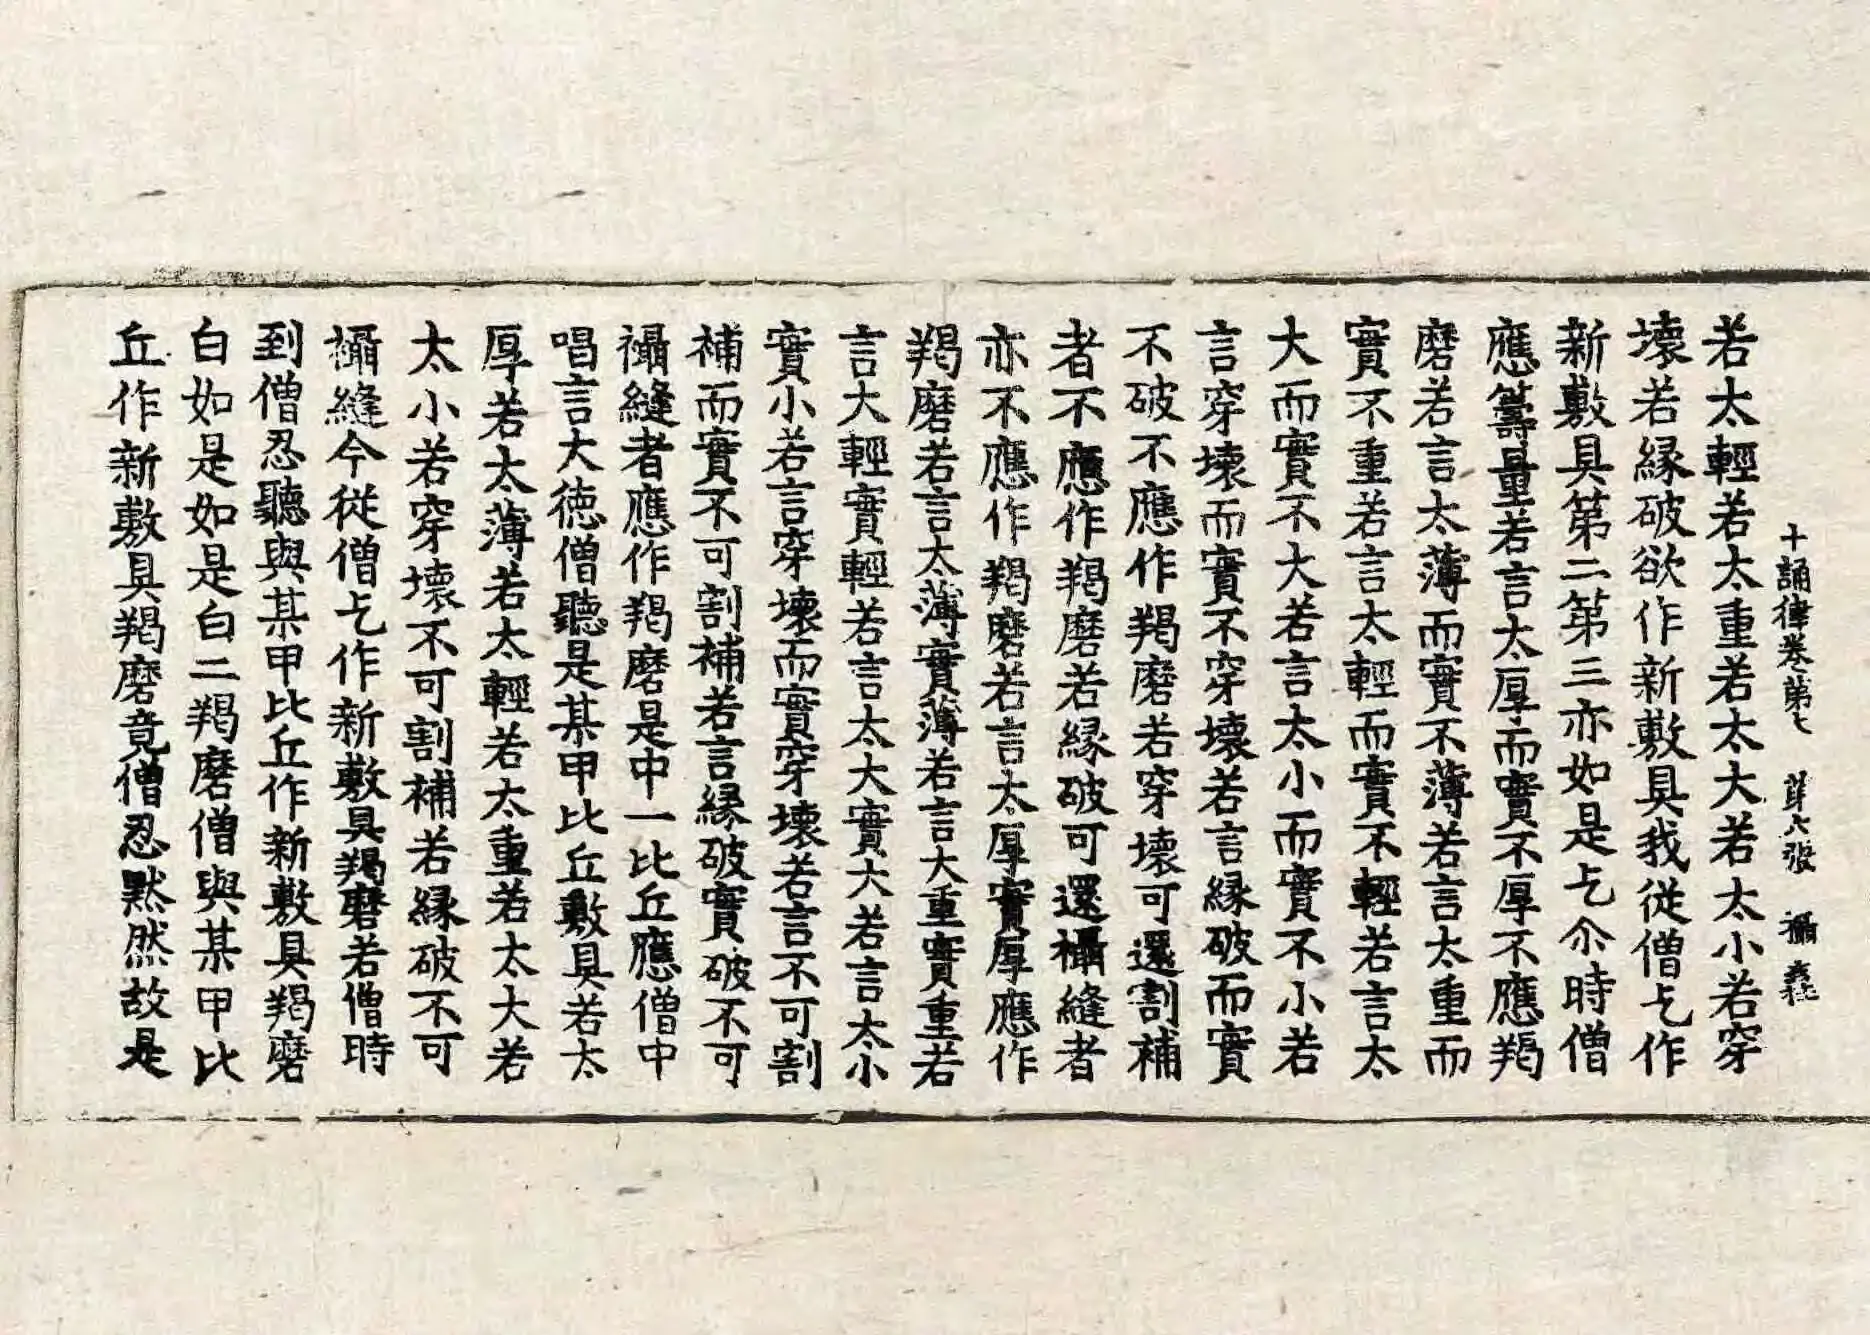 十誦律卷第七 第六張 攝
若太輕若太重若太大若太小若穿
壞若緣破欲作新敷具我從僧乞作
新敷具第二第三亦如是乞尒時僧
應籌量若言太厚而實不厚不應羯
磨若言太薄而實不薄若言太重而
實不重若言太輕而實不輕若言太
大而實不大若言太小而實不小若
言穿壞而實不穿壞若言緣破而實
不破不應作羯磨若穿壞可還割補
者不應作羯磨若緣破可還襵縫者
亦不應作羯磨若言太厚實厚應作
羯磨若言太薄實薄若言大重實重若
言大輕實輕若言太大實大若言太小
實小若言穿壞而實穿壞若言不可割
補而實不可割補若言緣破實破不可
襵縫者應作羯磨是中一比丘應僧中
唱言大德僧聽是某甲比丘敷具若太
厚若太薄若太輕若太重若太大若
太小若穿壞不可割補若緣破不可
襵縫今從僧乞作新敷具羯磨若僧時
到僧忍聽與某甲比丘作新敷具羯磨
白如是如是白二羯磨僧與某甲比
丘作新敷具羯磨竟僧忍默然故是